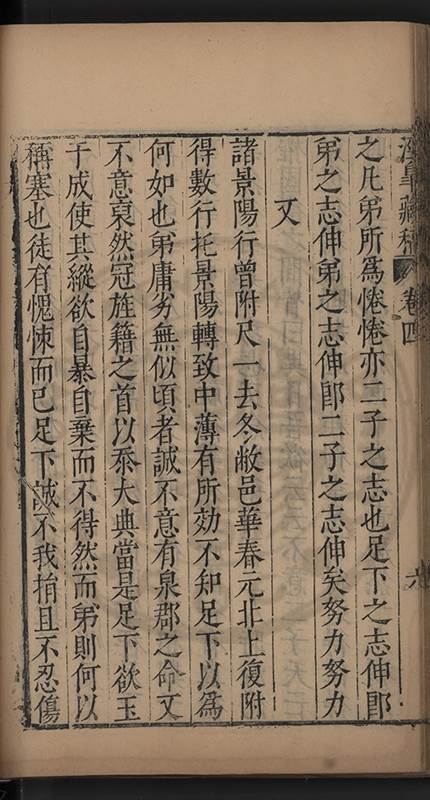 涇臯藏稿 卷四 六
之凡弟所為惓惓亦二子之志也足下之志伸卽
弟之志伸弟之志伸卽二子之志伸矣努力努力
又
諸景陽行曾附尺一去冬敝邑華春元北上復附
得數行托景陽轉致中薄有所効不知足下以為
何如也弟庸劣無似頃者誠不意有泉郡之命又
不意裒然冠旌籍之首以忝大典當是足下欲玉
于成使其縱欲自暴自棄而不得然而弟則何以
稱塞也徒有愧悚而已足下誠不我捐且不忍傷